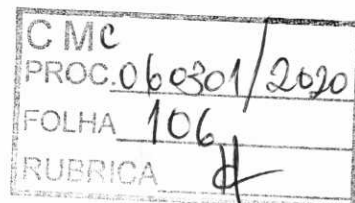 CMC
PROC. 060301/2020
FOLHA 106
RUBRICA